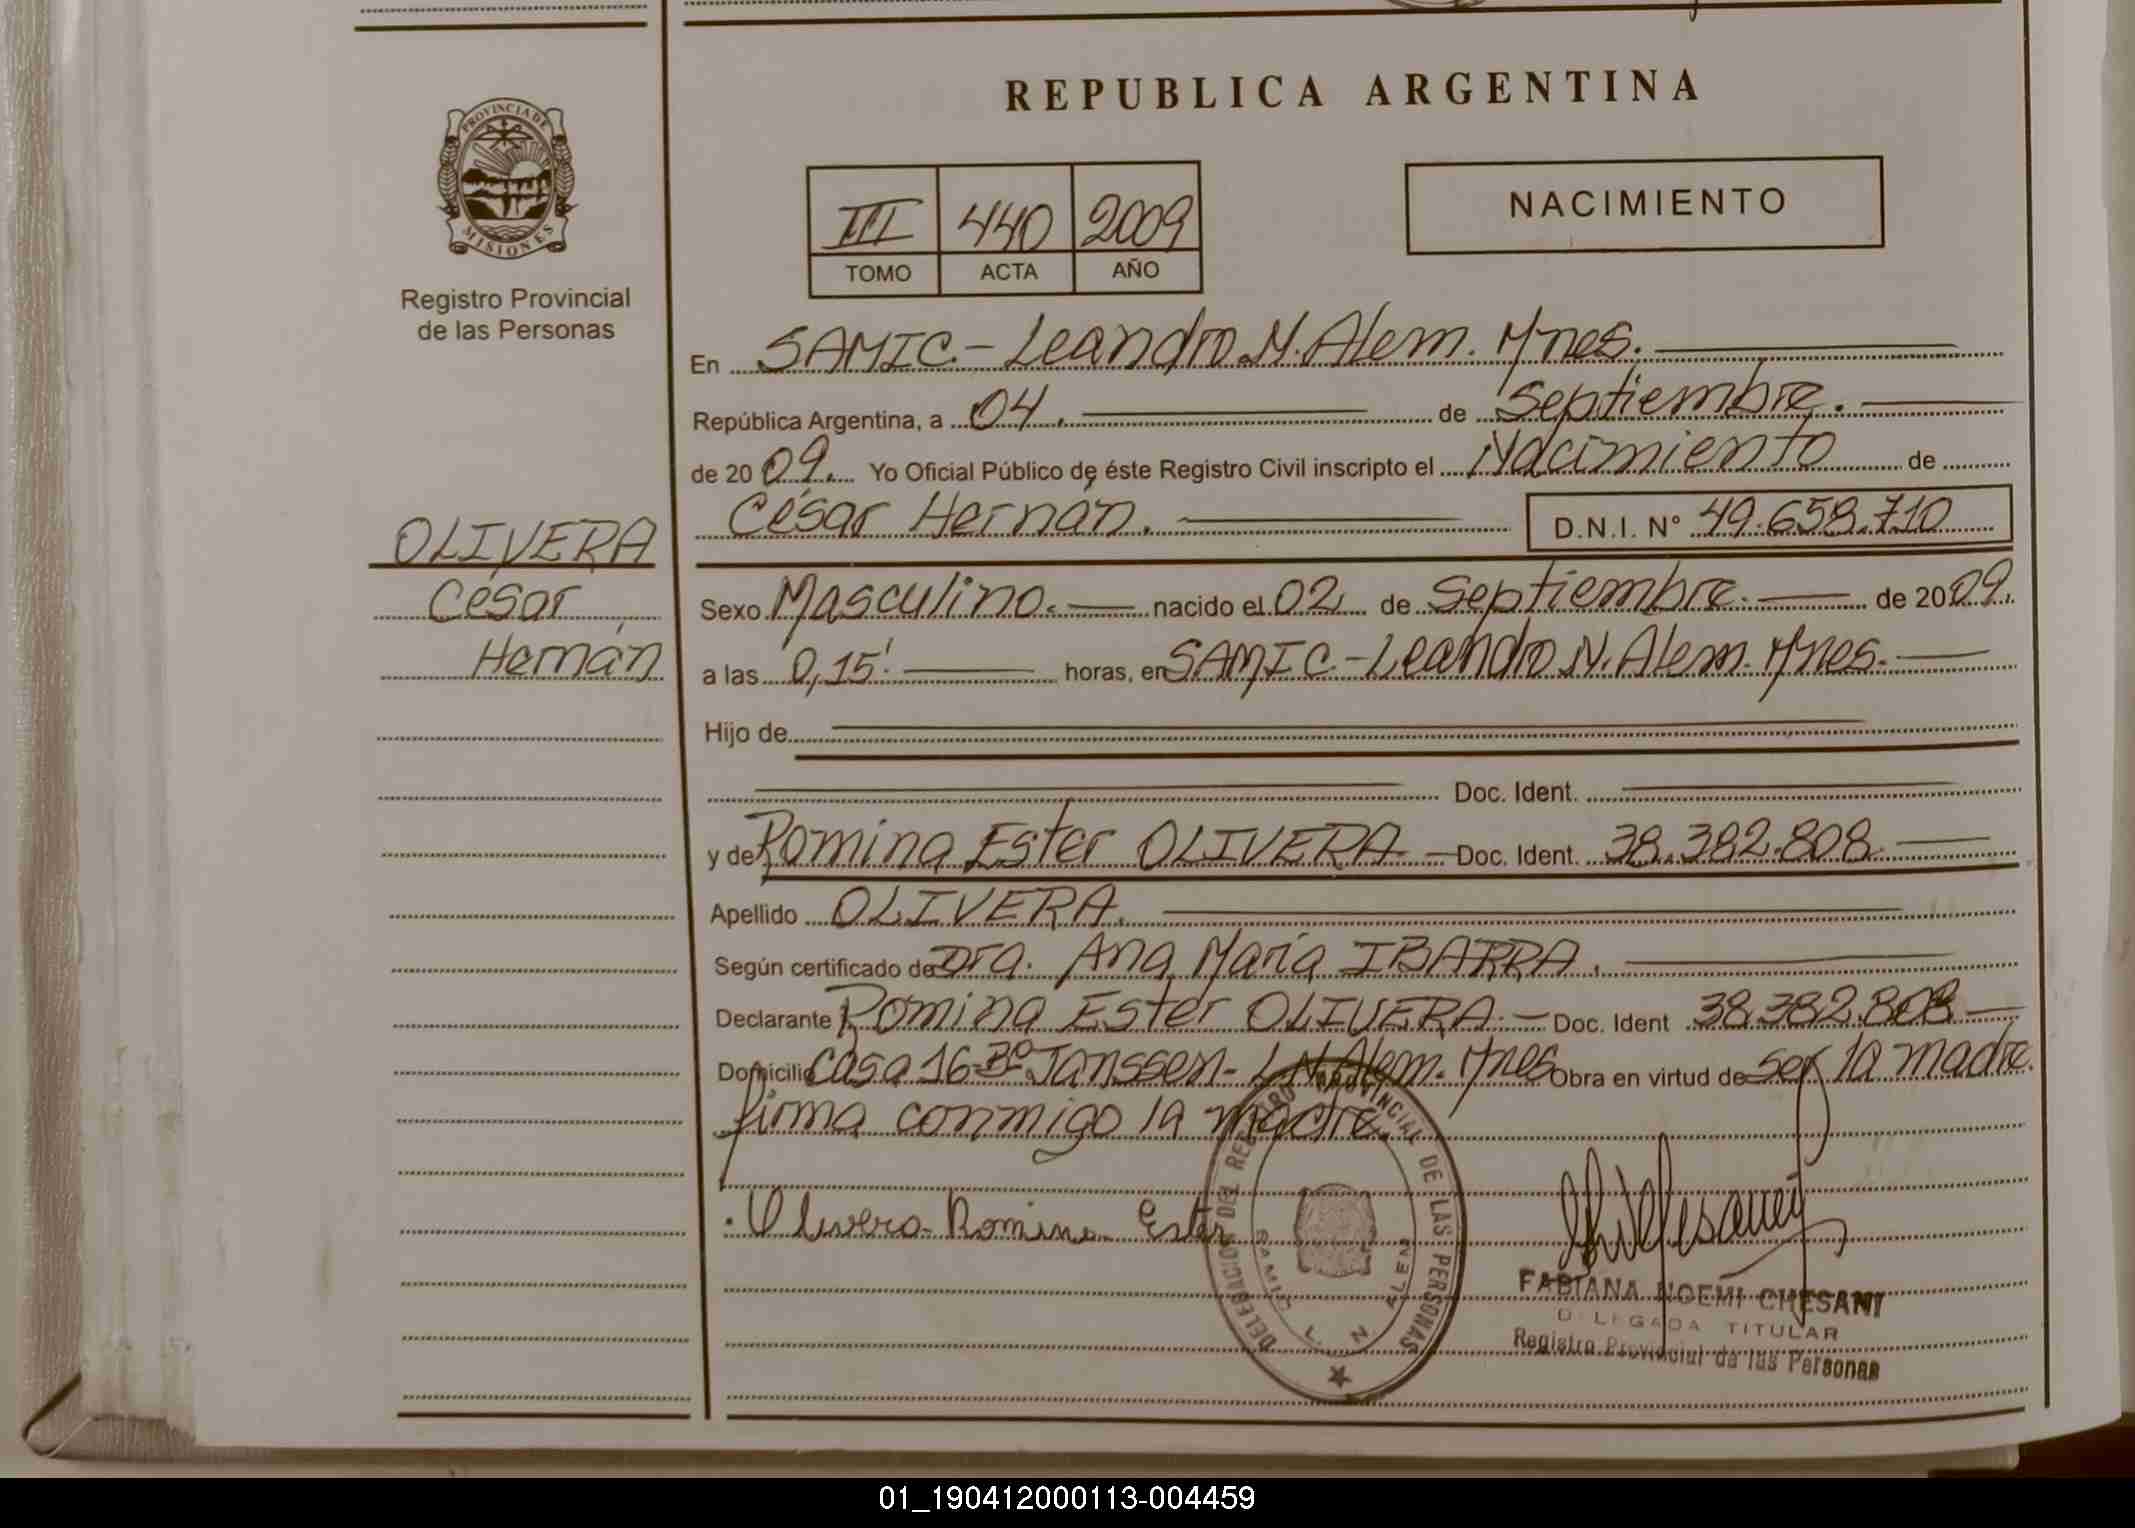 REPUBLICA ARGENTINA
PROVINCIA DE MISIONES
Registro Provincial
de las Personas
III 440 2009
TOMO ACTA AÑO
NACIMIENTO
En SAMIC - Leandro N. Alem. Mnes.
República Argentina, a 04. de Septiembre.
de 2009. Yo Oficial Público de éste Registro Civil inscripto el Nacimiento de
César Hernán. D.N.I. N° 49.658.710
OLIVERA
César
Hernán
Sexo Masculino. nacido el 02 de Septiembre. de 2009.
a las 0,15' horas, en SAMIC - Leandro N. Alem. Mnes.
Hijo de
Doc. Ident.
y de Romina Ester OLIVERA - Doc. Ident. 38.382.808
Apellido OLIVERA.
Según certificado de Dra. Ana María IBARRA.
Declarante Romina Ester OLIVERA - Doc. Ident 38.382.808
Domicilio Casa 16 Bº Janssen - L.N. Alem. Mnes Obra en virtud de ser la madre.
firma conmigo la madre.
Olivera Romina Ester
DELEGACION DEL REGISTRO PROVINCIAL DE LAS PERSONAS
SAMIC L. N. ALEM
FABIANA NOEMI CHESANI
DELEGADA TITULAR
Registro Provincial de las Personas
01_190412000113-004459